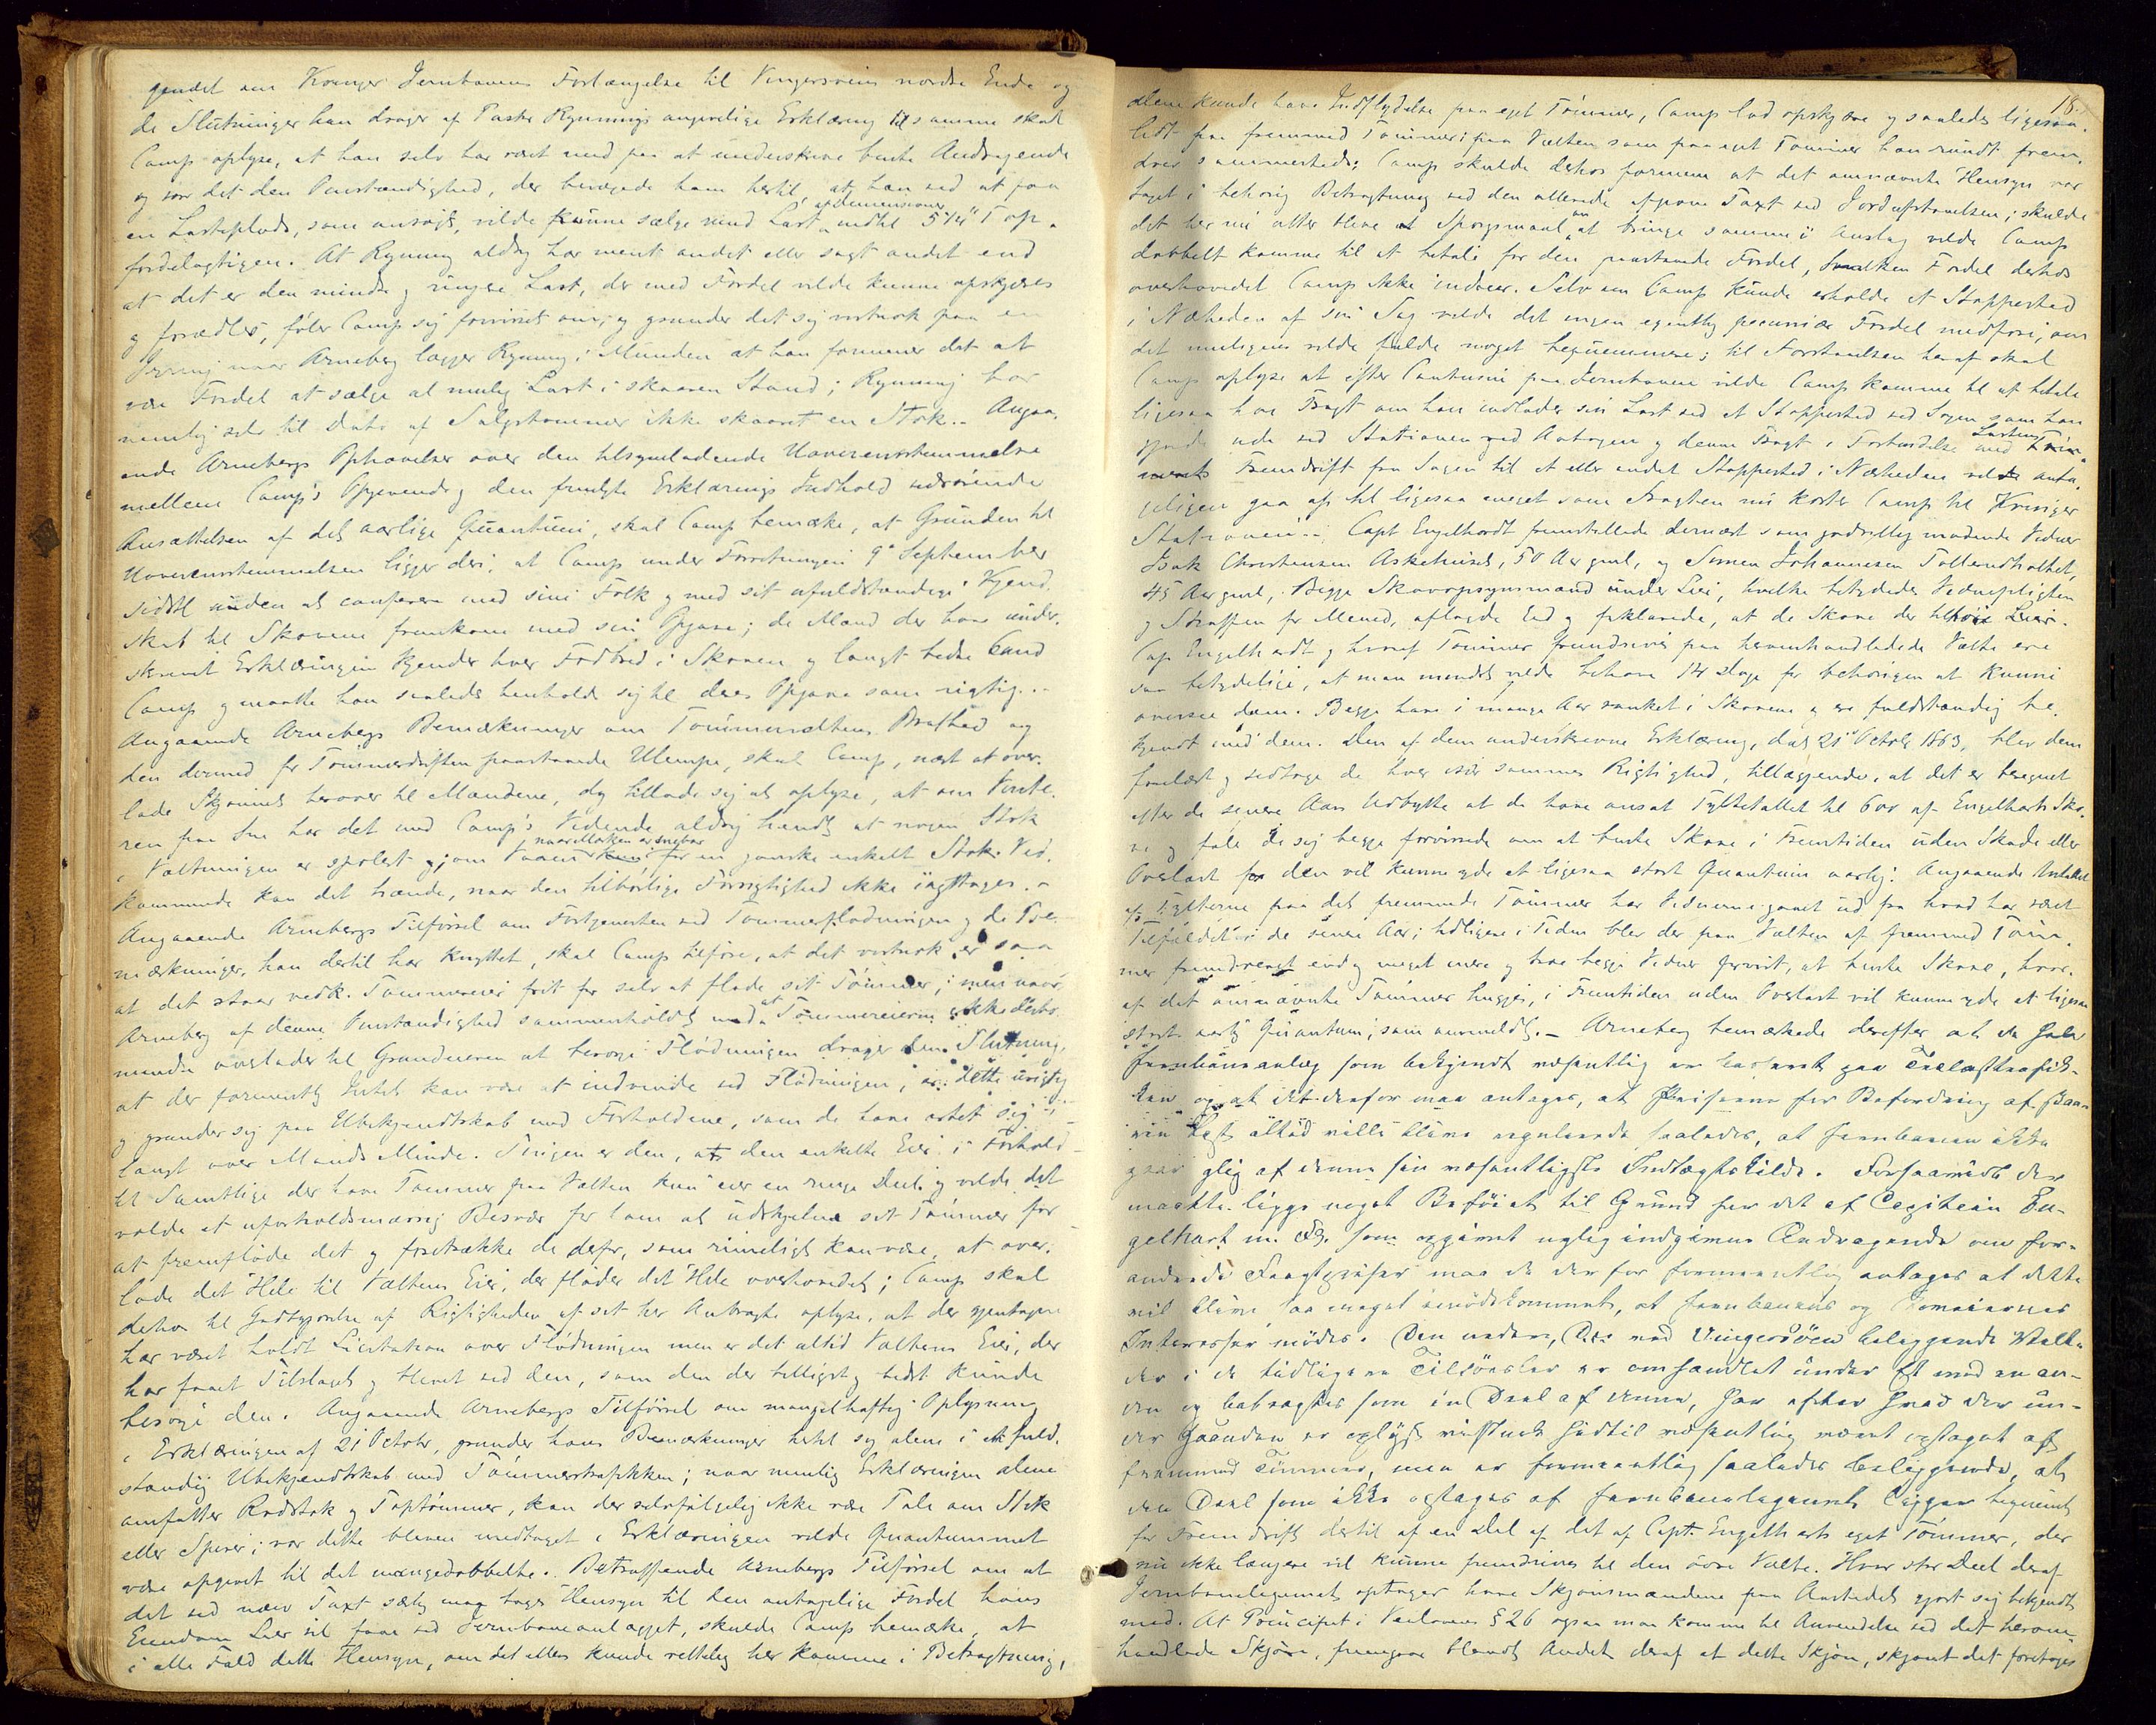 gendet om Kongsv. Jernbanens Forlængelse til Vingersøens nordre Ende og
de Slutninger han drager af Pastor Rynnings angivelige Erklæring til samme skal
Camp oplyse, at han selv har været med paa at underskrive bemte Andragende
og var det den Omstændighed, der bevægede ham hertil at han ved at faa
en Lasteplads, som ansøgt, vilde kunne sælge mind Last af dimensioner indtil 5 1/4" Top
fordelagtigen. At Rynning aldrig har ment andet eller sagt andet end
at det er den mindre og ringere Last, der med Fordel vilde kunne opskjæres
og forædles, föler Camp sig forvisset om, og grunder det sig vistnok paa en
naar Arneberg lægger Rynning i Munden at han formener det at
være Fordel at sælge al mulig Last i skaaren Stand; Rynning har
nemlig selv til Dato af Salgstømmer ikke skaaret en Stok. - Angaa-
ende Arnebergs Ophævelser over den tilsyneladende Uoverensstemmelse
mellem Camp's Opgivende og den fremlagte Erklærings Indhold vedrörende
Ansættelsen af det aarlige Quantum, skal Camp bemærke, at Grunden til
Uoverensstemmelsen ligger deri, at Camp under Forretningen 9de September
sidstl. uden at conferere med sine Folk og med sit ufuldstændige Kjend-
skab til Skovene fremkom med sin Opgave; de Mænd der har under-
skrevet Erklæringen kjender hver Fodbred i Skoven og langt bedre end
Camp og maatte han saaledes henholde sig til deres Opgave som rigtig. -
Angaaende Arnebergs Bemærkninger om Tømmervæltens Brathed og
den dermed for Tømmerdriften paastaaede Ulempe, skal Camp, næst at over-
lade Skjønnet herover til Mændene, dog tillade sig at oplyse, at
har det med Camp's Vidende aldrig hændt at nogen Stok
i Væltningen er spolert naar Marken er snebar for en ganske enkelt Stok. Ved-
kommende kan det hænde, naar den tilbørlige Forsigtighed ikke iagttages. -
Angaaende Arnebergs Tilførsel om Fortjenesten ved Tømmerflødningen og de Be-
mærkninger, han dertil har knyttet, skal Camp tilføre, at det vistnok er saa
at det staar vedk. Tømmereier frit for selv at fløde sit Tømmer, men naar
Arneberg af denne Omstændighed sammenholdt med at Tømmereierne ikke desto
mindre overlader til Grundeieren at besørge Flødningen drager den Slutning,
at der formentl. Intet kan være at indvinde ved Flødningen, er dette urigtig
og grunder sig paa Ubekjendtskab med Forholdene, som de have artet sig i
langt over Mands Minde. Tingen er den, at den enkelte Eier i Forhold
til Samtlige der have Tømmer paa Vælten kun eier en ringe Deel og vilde det
volde et uforholdsmæssig Besvær for ham at udskjelne sit Tømmer for
at fremfløde det og foretrække de derfor, som rimeligt kan være, at over-
lade det Hele til Væltens Eier, der fløder det Hele overhovedet; Camp skal
derhos til Godtgjørelse af Rigtigheden af sit her Anbragte oplyse, at der gjentagne
har været holdt Licitation over Flødningen men er det altid Væltens Eier, der
har faaet Tilslaget og blevet ved den, som den der billigst og bedst kunde
besørge den. Angaaende Arnebergs Tilførsel om mangelhaftig Oplysning
i Erklæringen af 21 Octobr, grunder hans Bemærkninger hertil sig alene i et fuld-
stændig Ubekjendtskab med Tømmertrafikken; naar nemlig Erklæringen alene
omfatter Rodstok og Toptømmer, kan der selvfølgelig ikke være Tale om Stok
eller Spirer; var dette bleven medtaget i Erklæringen vilde Quantummet
være opgivet til det mangedobbelte. Betræffende Arnebergs Tilførsel om at
det ved nærv. Taxt særlig maa tages Hensyn til den antagelige Fordel hans
Eiendom Lier vil faae ved Jernbaneanlægget, skulde Camp bemærke, at
i alle Fald dette Hensyn, om det ellers kunde rettelig her komme i Betragtning,
18.
alene kunde have Indflydelse paa eget Tømmer, Camp lod opskjære og saaledes ligesaa-
lidt paa fremmed Tømmer paa Vælten som paa eget Tømmer han rundt frem-
drev sammesteds; Camp skulde derhos formene at det omnævnte Hensyn var
taget i behørig Betragtning ved den allerede afgivne Taxt ved Jordafstaaelsen; skulde
det her nu atter blive et Spørgsmaal om at bringe samme i Anslag vilde Camp
dobbelt komme til at betale for den paastaaede Fordel, hvilken Fordel derhos
overhovedet Camp ikke indseer. Selv om Camp kunde erholde et Stoppested
i Nærheden af sin Sag vilde det ingen egentlig pecuniær Fordel medføre, om
det muligens vilde falde noget beqvemmere; til Forstaaelsen heraf skal
Camp oplyse at efter Cantumi paa Jernbanen vilde Camp komme til at betale
ligesaa høi Fragt om han indlader sin Last ved et Stoppested ved Sagen som han
gjorde ude ved Stationen ved Aabogen og denne Fragt i Forbindelse med Lastens
Fremdrift fra Sagen til et eller andet Stoppested i Nærheden vilde anta-
geligen gaa op til ligesaa meget som Fragten nu koster Camp til Kongsv.
Stationen. - Capt Engelhardt fremstillede dernæst som godvillig mødende Vidner
Isak Christensen Askehuset, 50 Aar gml, og Simen Johannesen Tollerudholtet,
45 Aar gml, Begge Skovopsynsmænd under Lier, hvilke betydedes Vidnepligten
og Straffen for Meened, aflagde Eed og forklarede, at de Skove der tilhöre Lier.
Cap. Engelhardt og hvoraf Tømmer fremdrives paa heromhandlede Vælte ere
saa betydelige, at man mindst vilde behøve 14 Dage for behørigen at kunne
oversee dem. Begge have i mange Aar vanket i Skovene og ere fuldstændig be-
kjendt med dem. Den af dem underskrevne Erklæring, dat 21de Octobr 1863, blev dem
forelæst og vedtoge de hver især sammes Rigtighed, tillæggende, at det er beregnet
efter de senere Aars Udbytte at de have ansat Tyltetallet til 600 af Engelharts Sko-
ve og føle de sig begge forvissede om at bemte Skove i Fremtiden uden Skade eller
Overlast for den vil kunne yde et ligesaa stort Quantum aarlig. Angaaende Antallet
af Tylterne paa det fremmede Tømmer har Vidnerne gaaet ud fra hvad har været
Tilfældet i de senere Aar; tidligere i Tiden blev der paa Vælten af fremmed Tøm-
mer fremdrevet endog meget mere og troe begge Vidner forvist, at bemte Skove, hvor-
af det omnævnte Tømmer hugges, i Fremtiden uden Overlast vil kunne yde et ligesaa
stort aarlig Quantum, som anmeldt. - Arneberg bemærkede derefter at da hele
Jernbaneanlæg som bekjendt væsentlig er baseret paa Trælasttrafik-
ken og at det derfor maa antages, at Priserne for Befordring af Saa-
dan Last altid ville blive regulerede saaledes, at Jernbanen ikke
gaar glip af denne sin væsentligste Indtægtskilde. Forsaavidt der
maatte ligge noget Beføiet til Grund for det af Capitain En-
gelhart m. Fl. som opgivet nylig indgivne Andragende om for-
andrede Fragtpriser maa da derfor formeentlig antages at dette
vil blive saa meget imødekommet, at Jernbanens og Domainernes
Interesser mødes. Den nedre, Der ved Vingersöen beliggende Vælte
der i de tidligere Tilførsler er omhandlet under Et med en an-
den og betragtet som en Deel af denne, har efter hvad der un-
der Haanden er oplyst vistnok hidtil væsentlig været optaget af
fremmed Tømmer, men er formeentlig saaledes beliggende, at
den Deel som ikke optages af Jernbanelegemet ligger beqvemt
for Fremdrift dertil af en Del af det af Capt. Engelharts eget Tømmer, der
nu ikke længere vil kunne fremdrives til den övre Vælte. Hvor stor Deel deraf
Jernbanelegemet optager have Skjønsmændene paa Aastedet gjort sig bekjendt
med. At Princippet i Veiloven § 26 ogsaa maa komme til Anvendelse ved det herom-
handlede Skjøn, fremgaar blandt Andet deraf at dette Skjøn, skjønt det foretages